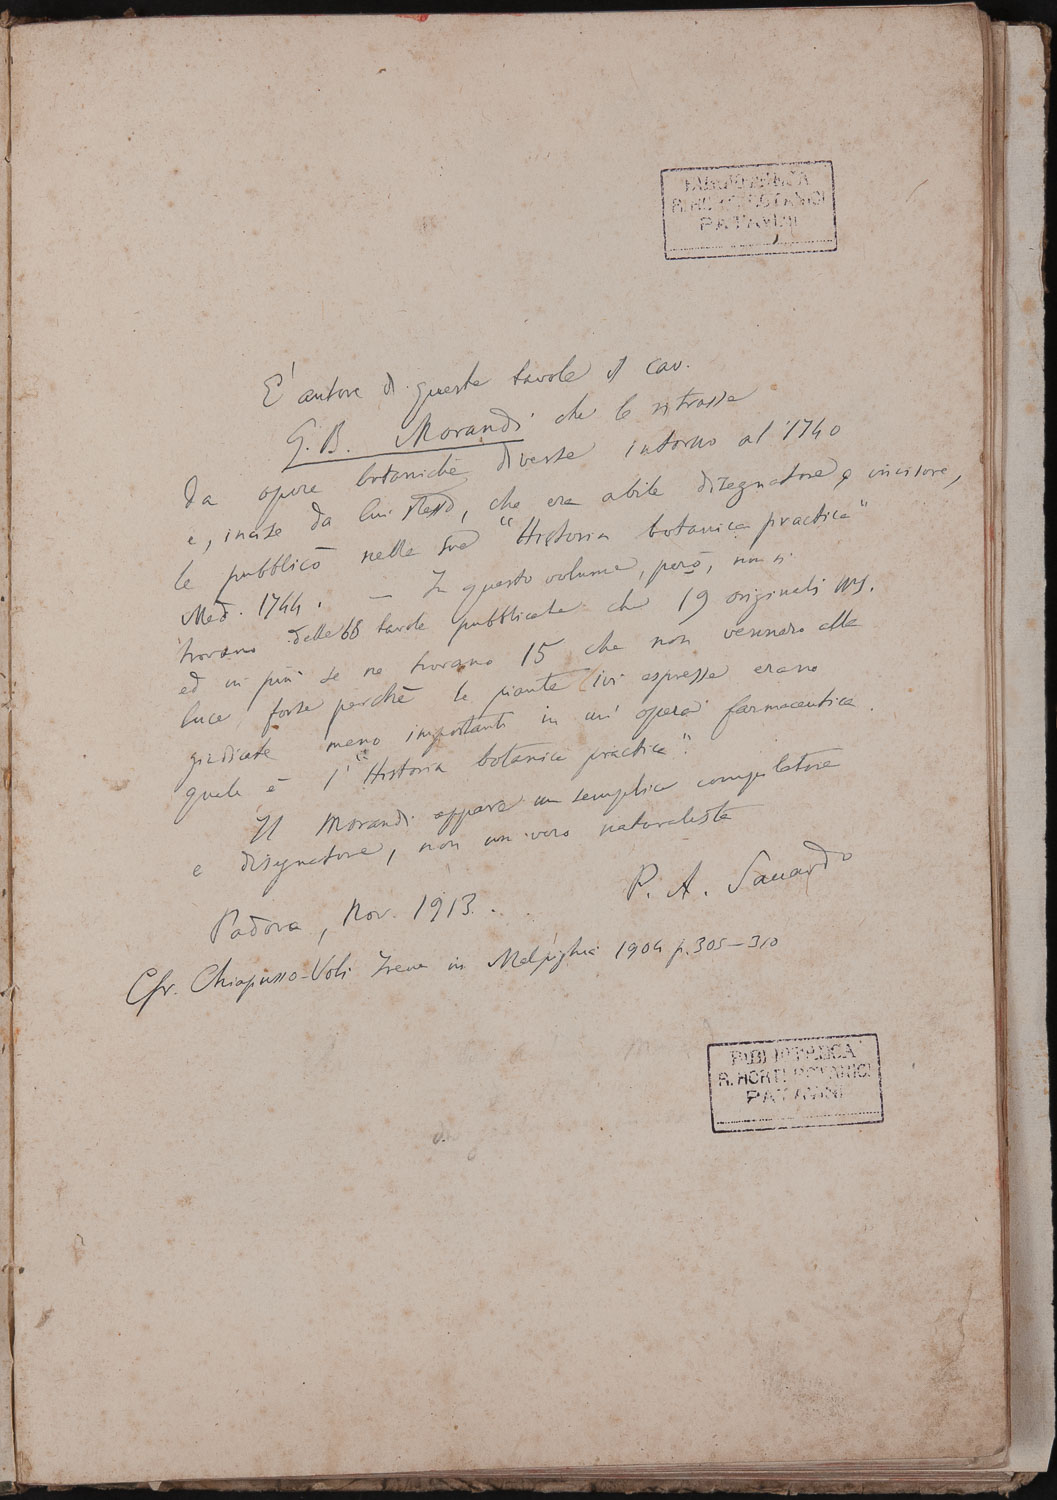 BIBLIOTHECA
R. HORTI BOTANICI
PATAVINI
E' autore di queste tavole il cav.
G. B. Morandi che le ritrasse
da opere botaniche diverse intorno al 1740
e, incise da lui stesso, che era abile disegnatore e incisore,
le pubblicò nella sua "Historia botanica practica"
Med. 1744. — In questo volume, però, non si
trovano delle 68 tavole pubblicate che 19 originali ms.
ed in più se ne trovano 15 che non vennero alla
luce forse perchè le piante ivi espresse erano
giudicate meno importanti in un' opera farmaceutica
quale è l' "Historia botanica practica".
Il Morandi appare un semplice compilatore
e disegnatore, non un vero naturalista
Padova, Nov. 1913.
P. A. Saccardo
Cfr. Chiapusso-Voli Irene in Malpighia 1904 p. 305-310
BIBLIOTHECA
R. HORTI BOTANICI
PATAVINI